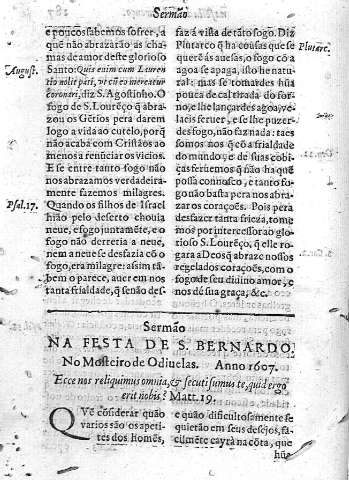 Sermão
e poucos sabemos sofrer, a
quẽ não abrazarão as cha-
mas de amor deste glorioso
Santo: Quis enim cum Laurentio
nolit pati, ut cũ eo mereatur
coronari, diz S. Agostinho. O
fogo de S. Lourẽço q̃ abra-
zou os Gẽtios pera darem
logo a vida ao cutelo, porq̃
não acaba com Cristãos ao
menos a renũciar os vicios.
E se entre tanto fogo não
nos abrazamos verdadeira-
mente fazemos milagres.
Quando os filhos de Israel
hião pelo deserto chouia
neue, e fogo juntamẽte, e o
fogo não derretia a neue,
nem a neue se desfazia cõ o
fogo, era milagre: assim tã-
bem o parece, auer em nos
tanta frialdade, q̃ se não des-
August.
Psal. 17.
faz á vista de tãto fogo. Diz
Plutarco q̃ ha cousas que se
querẽ ás auesas, o fogo cõ a
agoa se apaga, isto he natu-
ral: mas se tomardes hũa
pouca de cal tirada do for-
no, e lhe lançardes agoa, ve-
la eis feruer, e se lhe puzer-
des fogo, não faz nada: taes
somos nos q̃ cõ a frialdade
do mundo, e de suas cobi-
ças feruemos q̃ não ha quẽ
possa connosco, e tanto fo-
go não basta pera nos abra-
zar os coraçoẽs. Pois pera
desfazer tanta frieza, tome
mos por intercessor ao glo-
rioso S. Lourẽço, q̃ elle ro-
gara a Deos q̃ abraze nossos
regelados coraçoẽs, com o
fogo de seu diuino amor, e
nos dé sua graça, &c.
Plutarc.
Sermão
NA FESTA DE S. BERNARDO
No Mosteiro de Odiuelas. Anno 1607.
Ecce nos reliquimus omnia, & secuti sumus te, quid ergo
erit nobis? Matt. 19.
QVẽ cõsiderar quão
varios são os apeti-
tes dos homẽs,
e quão dificultosamente se
quietão em seus desejos, fa-
cilmẽte cayrà na cõta, que
hũa